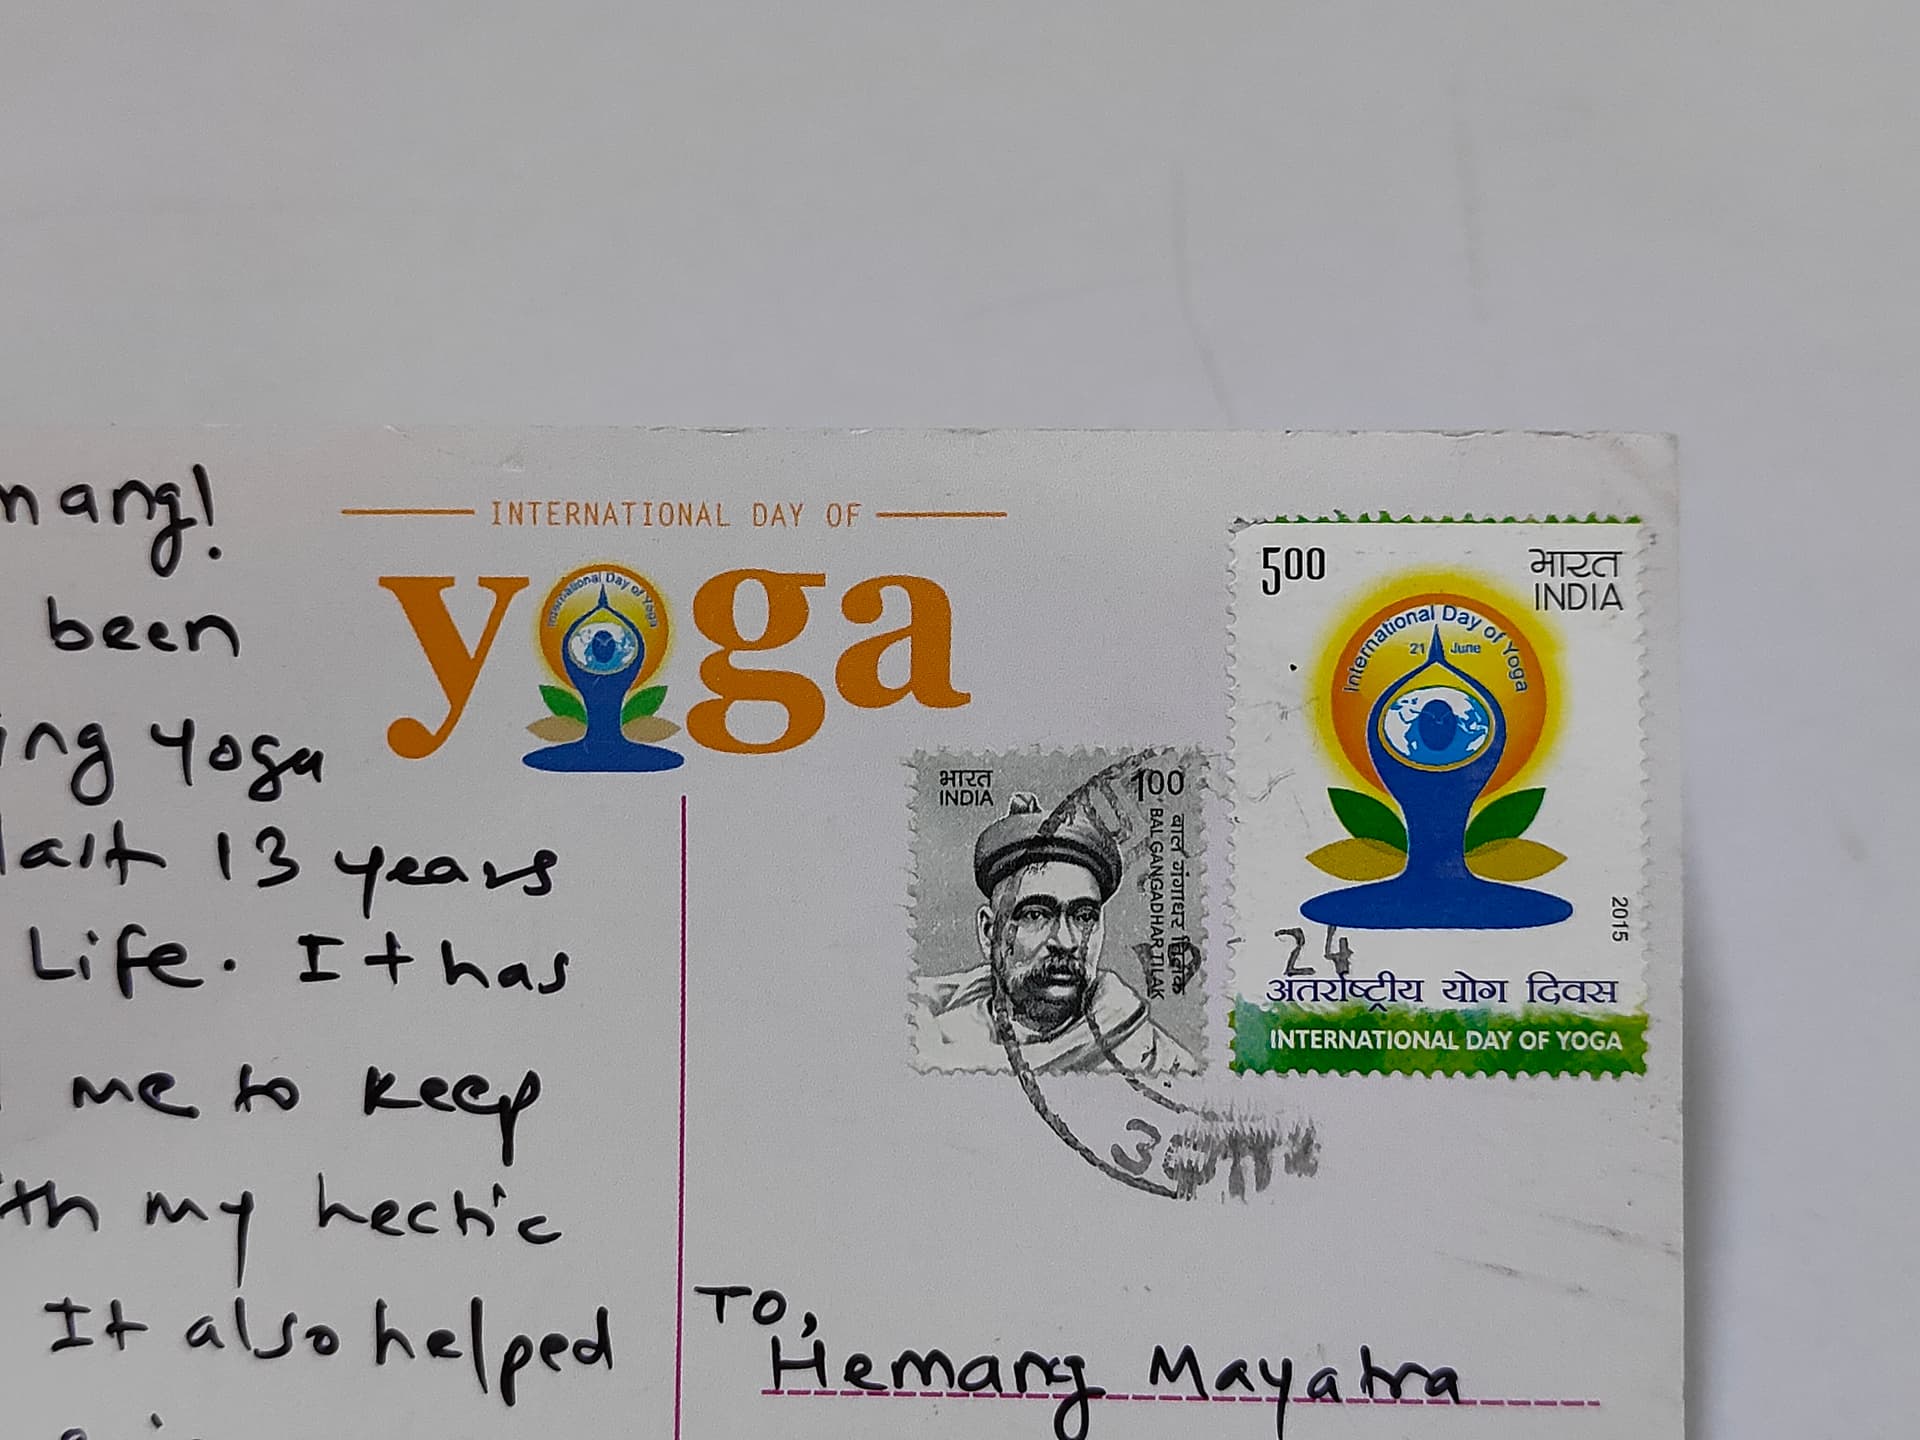 mang!
been
ing yoga
last 13 years
Life. It has
me to keep
ith my hectic
It also helped
INTERNATIONAL DAY OF
yoga
International Day of Yoga
भारत
INDIA
100
बाल गंगाधर तिलक
BAL GANGADHAR TILAK
500
भारत
INDIA
International Day of Yoga
21 June
2015
24
अंतर्राष्ट्रीय योग दिवस
INTERNATIONAL DAY OF YOGA
TO,
Hemang Mayatra